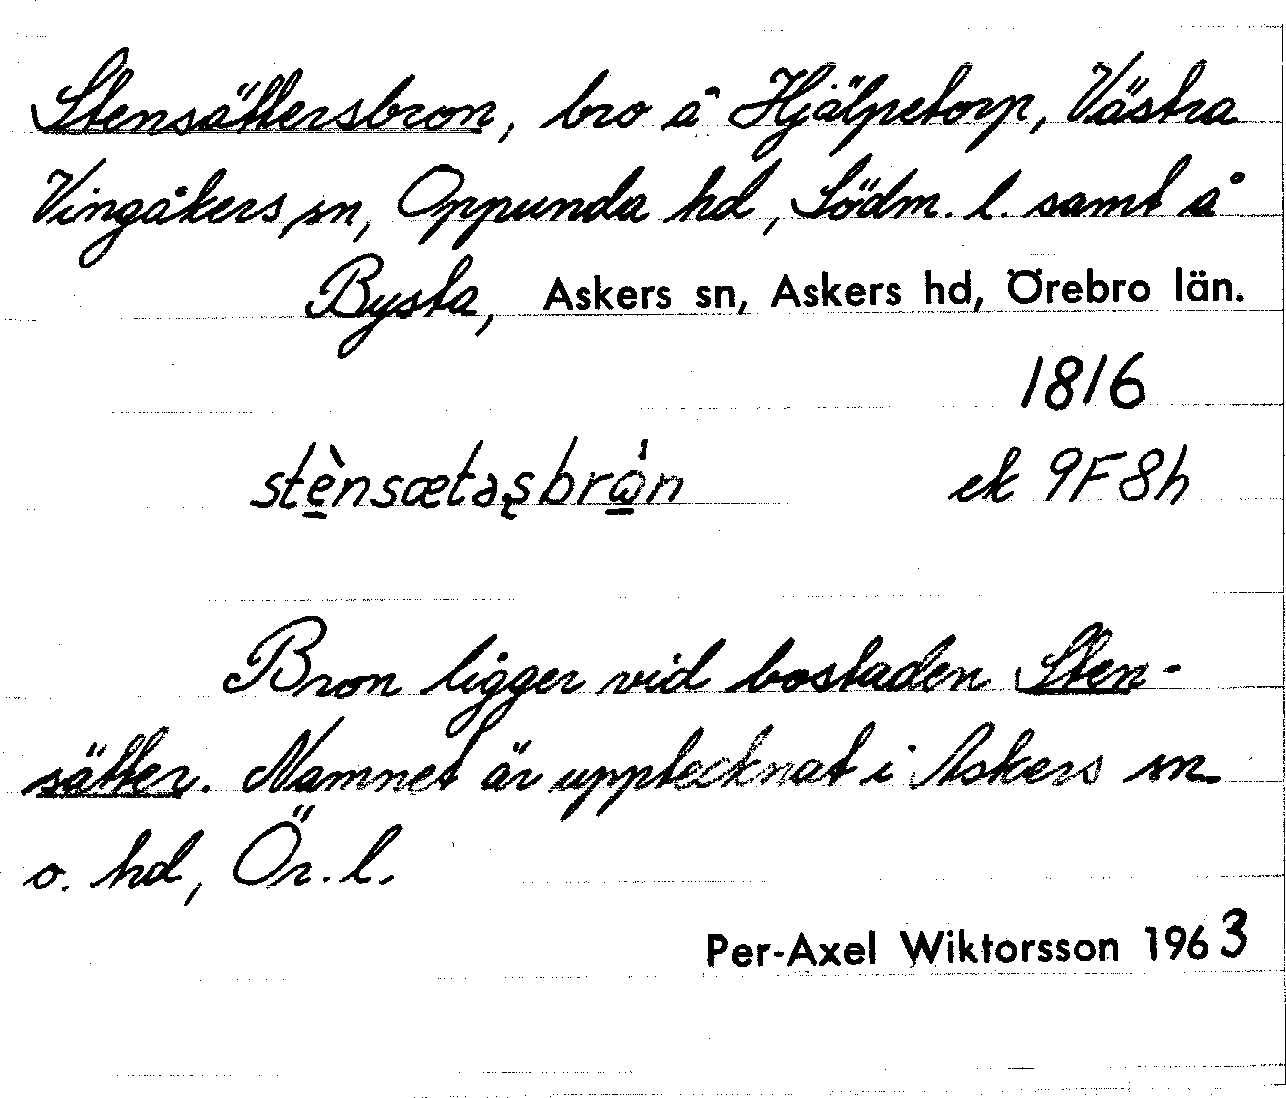 Stensättersbron, bro å Hjälpetorp, Västra
Vingåkers sn, Oppunda hd, Södm. l. samt å
Bysta, Askers sn, Askers hd, Örebro län.
1816
stè̱nsætəʂbrώ̱n ek 9F8h
Bron ligger vid bostaden Sten-
sätter. Namnet är upptecknat i Askers sn
o. hd, Ör. l.
Per-Axel Wiktorsson 1963